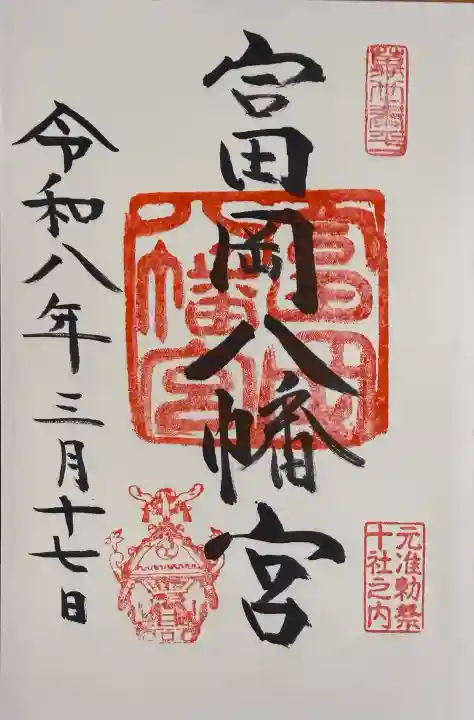 富岡八幡宮
富岡
八幡宮
元准勅祭
十社之内
令和八年三月十七日